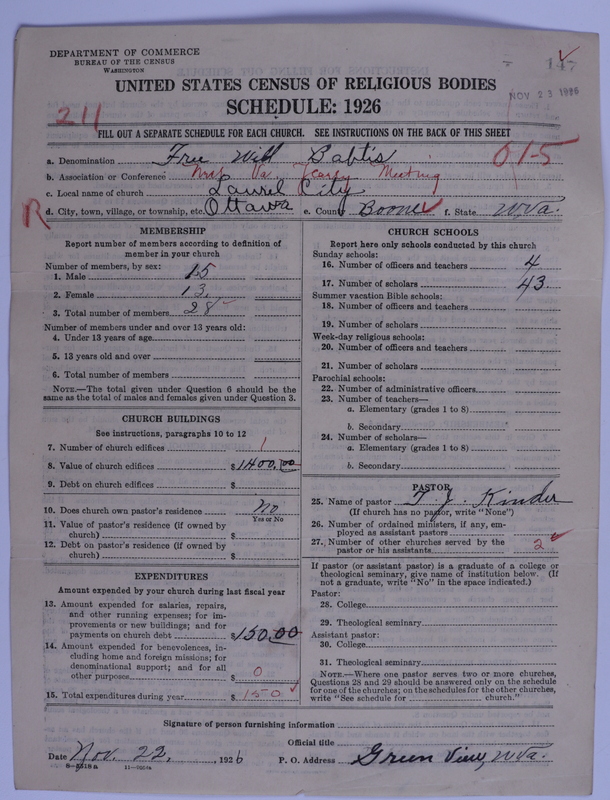 DEPARTMENT OF COMMERCE
BUREAU OF THE CENSUS
WASHINGTON
NOV 23 1926
UNITED STATES CENSUS OF RELIGIOUS BODIES
SCHEDULE: 1926
211
FILL OUT A SEPARATE SCHEDULE FOR EACH CHURCH. SEE INSTRUCTIONS ON THE BACK OF THIS SHEET
a. Denomination Free Will Baptis 01-5
b. Association or Conference Va. Yearly Meeting
c. Local name of church Laurel City
R d. City, town, village, or township, etc. Ottawa e. County Boone f. State W.Va.
MEMBERSHIP
Report number of members according to definition of
member in your church
Number of members, by sex:
1. Male 15
2. Female 13
3. Total number of members 28
Number of members under and over 13 years old:
4. Under 13 years of age
5. 13 years old and over
6. Total number of members
NOTE.—The total given under Question 6 should be the
same as the total of males and females given under Question 3.
CHURCH BUILDINGS
See instructions, paragraphs 10 to 12
7. Number of church edifices 1
8. Value of church edifices $1400.00
9. Debt on church edifices $
10. Does church own pastor's residence No
Yes or No
11. Value of pastor's residence (if owned by
church) $
12. Debt on pastor's residence (if owned by
church) $
EXPENDITURES
Amount expended by your church during last fiscal year
13. Amount expended for salaries, repairs,
and other running expenses; for im-
provements or new buildings; and for
payments on church debt $150.00
14. Amount expended for benevolences, in-
cluding home and foreign missions; for
denominational support; and for all
other purposes $ 0
15. Total expenditures during year $ 150
CHURCH SCHOOLS
Report here only schools conducted by this church
Sunday schools:
16. Number of officers and teachers 4
17. Number of scholars 43
Summer vacation Bible schools:
18. Number of officers and teachers
19. Number of scholars
Week-day religious schools:
20. Number of officers and teachers
21. Number of scholars
Parochial schools:
22. Number of administrative officers
23. Number of teachers—
a. Elementary (grades 1 to 8)
b. Secondary
24. Number of scholars—
a. Elementary (grades 1 to 8)
b. Secondary
PASTOR
25. Name of pastor T. J. Kinder
(If church has no pastor, write "None")
26. Number of ordained ministers, if any, em-
ployed as assistant pastors
27. Number of other churches served by the
pastor or his assistants 2
If pastor (or assistant pastor) is a graduate of a college or
theological seminary, give name of institution below. (If
not a graduate, write "No" in the space indicated.)
Pastor:
28. College
29. Theological seminary
Assistant pastor:
30. College
31. Theological seminary
NOTE.—Where one pastor serves two or more churches,
Questions 28 and 29 should be answered only on the schedule
for one of the churches; on the schedules for the other churches,
write "See schedule for church."
Signature of person furnishing information
Official title
Date Nov. 22, 1926 P. O. Address Green View, W.Va.